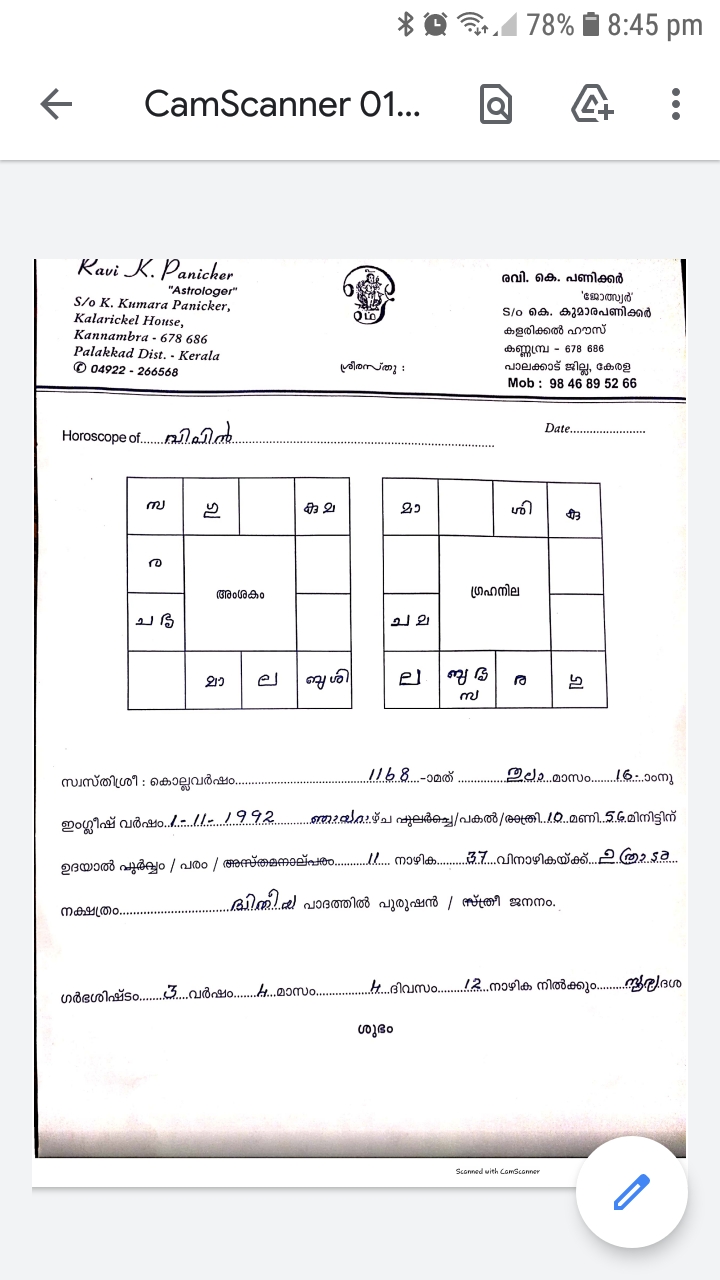 78% 8:45 pm
CamScanner 01...
Ravi K. Panicker
"Astrologer"
S/o K. Kumara Panicker,
Kalarickel House,
Kannambra - 678 686
Palakkad Dist. - Kerala
✆ 04922 - 266568
ശ്രീരസ്തു :
രവി. കെ. പണിക്കർ
'ജോത്സ്യർ'
S/o കെ. കുമാരപണിക്കർ
കളരിക്കൽ ഹൗസ്
കണ്ണമ്പ്ര - 678 686
പാലക്കാട് ജില്ല, കേരള
Mob : 98 46 89 52 66
Horoscope of..... വിപിൻ
Date......................
സ ഗു കു ച
ര
അംശകം
ച
മാ ല ബു ശി
മാ ശി കു
ഗ്രഹനില
ച
ല ബു സ ര ഗു
സ്വസ്തിശ്രീ : കൊല്ലവർഷം 1168 -ാമത് തുലാ മാസം 16 -ാംനു
ഇംഗ്ലീഷ് വർഷം 1-11-1992 ഞായറാഴ്ച പുലർച്ചെ/പകൽ/രാത്രി 10 മണി 56 മിനിട്ടിന്
ഉദയാൽ പൂർവ്വം / പരം / അസ്തമനാല്പരം 11 നാഴിക 37 വിനാഴികയ്ക്ക് ഉത്രാടം
നക്ഷത്രം ദ്വിതീയ പാദത്തിൽ പുരുഷൻ / സ്ത്രീ ജനനം.
ഗർഭശിഷ്ടം 3 വർഷം 4 മാസം 4 ദിവസം 12 നാഴിക നിൽക്കും സൂര്യ ദശ
ശുഭം
Scanned with CamScanner